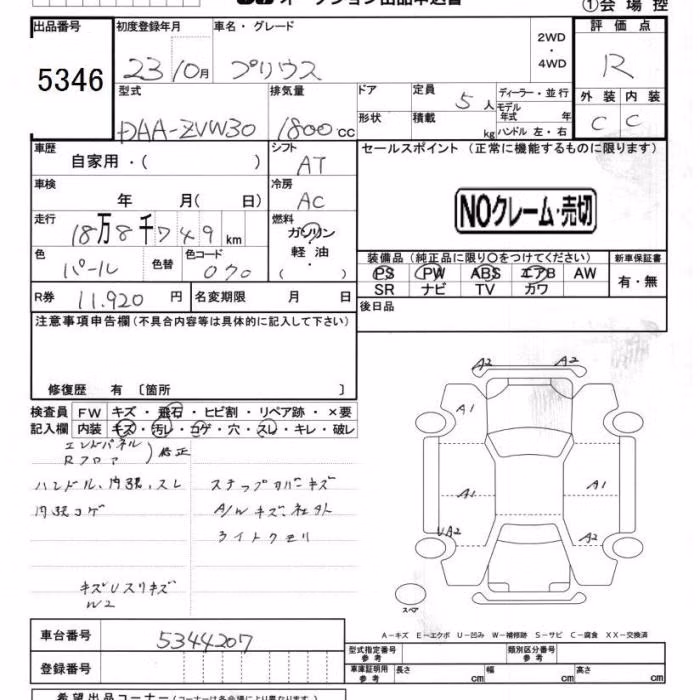 オークション出品申込書
①会場控
出品番号 初度登録年月 車名・グレード 2WD ・ 4WD 評価点
5346 23 10月 プリウス R
型式 排気量 ドア 定員 5人 ディーラー・並行 外装 内装
DAA-ZVW30 1800cc 形状 積載 kg モデル年式 年 ハンドル 左・右 C C
車歴 シフト セールスポイント (正常に機能するものに限ります)
自家用・( ) AT
車検 冷房
年 月( 日) AC NOクレーム・売切
走行 燃料
18万8千749km ガソリン 軽油 ( ・ )
色 色替 色コード 装備品 (純正品に限り○をつけてください) 新車保証書
パール 070 PS PW ABS エアB AW 有・無
SR ナビ TV カワ
R券 11,920円 名変期限 月 日 後日品
注意事項申告欄 (不具合内容等は具体的に記入して下さい)
修復歴 有 〔箇所 〕
検査員 FW キズ・飛石・ヒビ割・リペア跡・×要
記入欄 内装 キズ・汚レ・コゲ・穴・スレ・キレ・破レ
エンドパネル
Rフロア ) 修正
ハンドル、内張、スレ ステップカバーキズ
内張コゲ A/Wキズ、社外
ライトクモリ
キズUスリキズ
W2
A2 A2
A1
A1 A1
UA2 A2
スペア
A-キズ E-エクボ U-凹み W-補修跡 S-サビ C-腐食 XX-交換済
車台番号 5344207
登録番号
型式指定番号 参考 類別区分番号 参考
車庫証明用 参考 長さ cm 幅 cm 高さ cm
希望出品コーナー (コーナーは各会場により異なります)